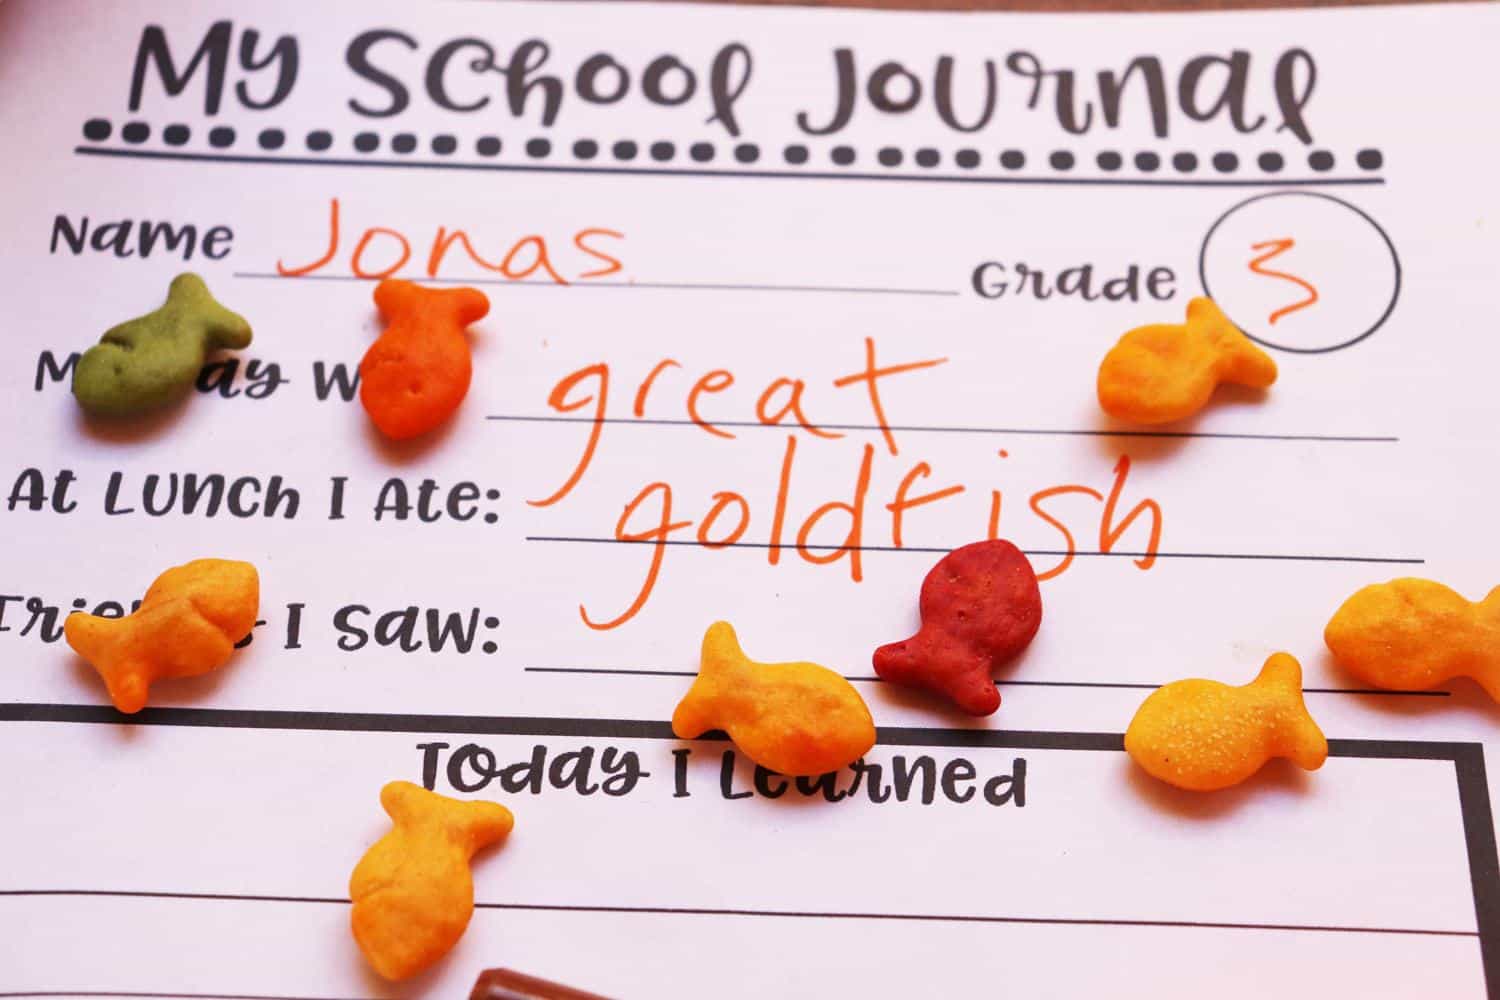 My School Journal
Name Jonas Grade 3
My Day Was great
At Lunch I Ate: goldfish
Friends I Saw:
Today I Learned